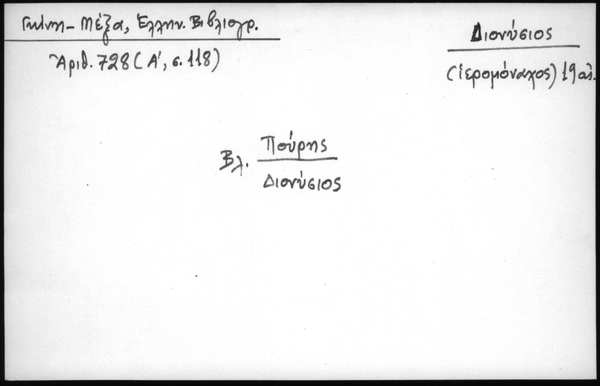 Γκίνη - Μέξα, Ἑλλην. Βιβλιογρ.
Ἀριθ. 728 (Α', σ. 118)
Διονύσιος
(ἱερομόναχος) 19 αἰ.
Βλ. Πούρης
Διονύσιος